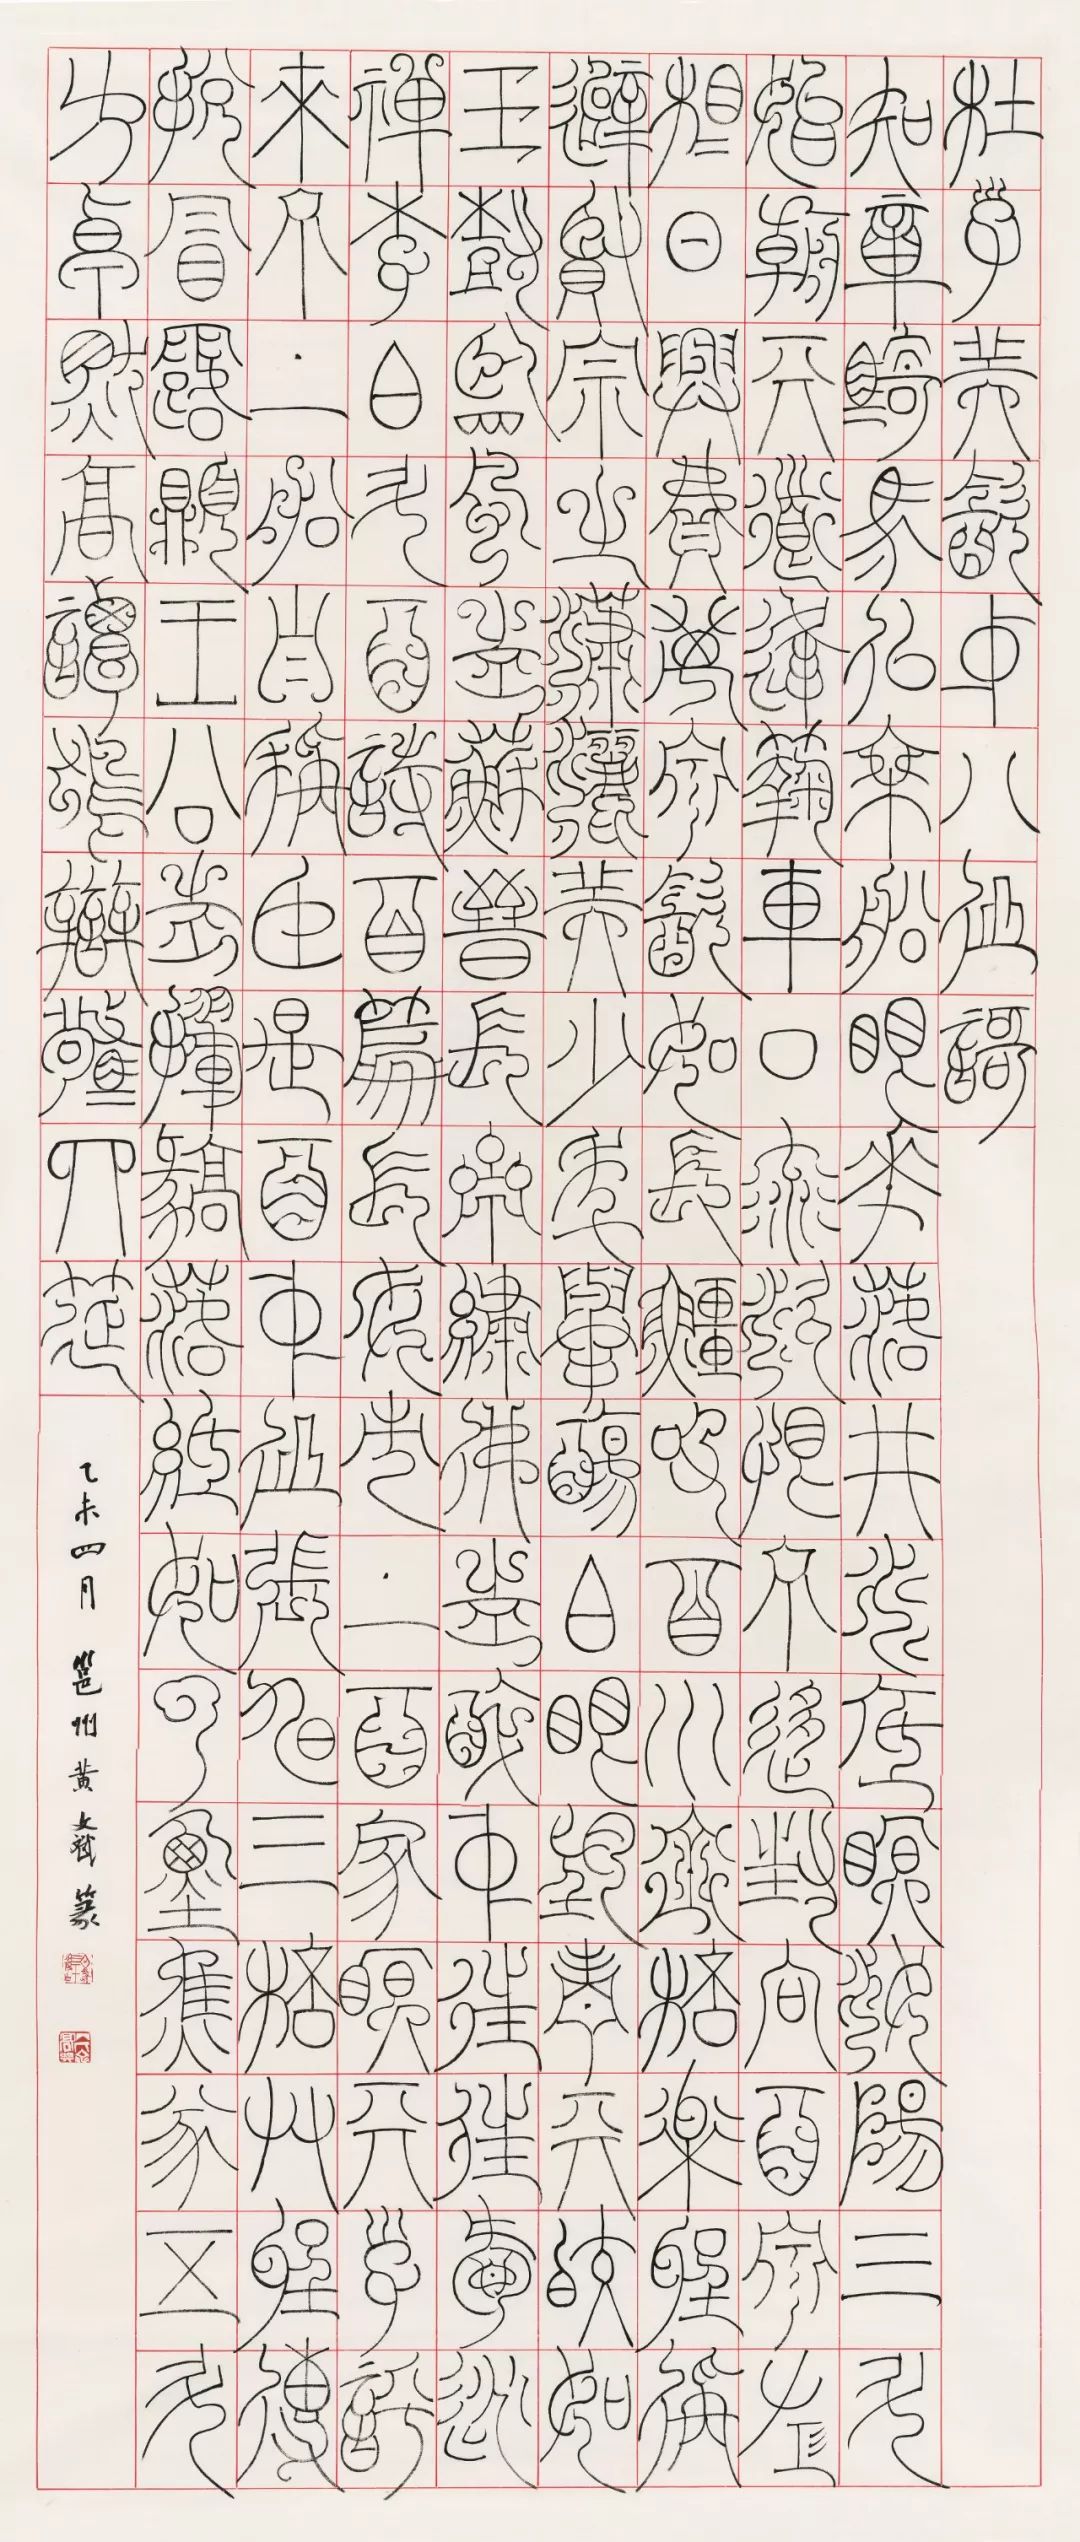 杜子美飲中八仙歌
知章騎馬似乘船眼花落井水底眠汝陽三斗
始朝天道逢麴車口流涎恨不移封向酒泉左
相日興費萬錢飲如長鯨吸百川銜杯樂聖稱
避賢宗之瀟灑美少年舉觴白眼望青天皎如
玉樹臨風前蘇晉長齋繡佛前醉中往往愛逃
禪李白斗酒詩百篇長安市上酒家眠天子呼
來不上船自稱臣是酒中仙張旭三杯草聖傳
脫帽露頂王公前揮毫落紙如雲煙焦遂五斗
方卓然高談雄辯驚四筵
乙未四月 邕州黃文 篆